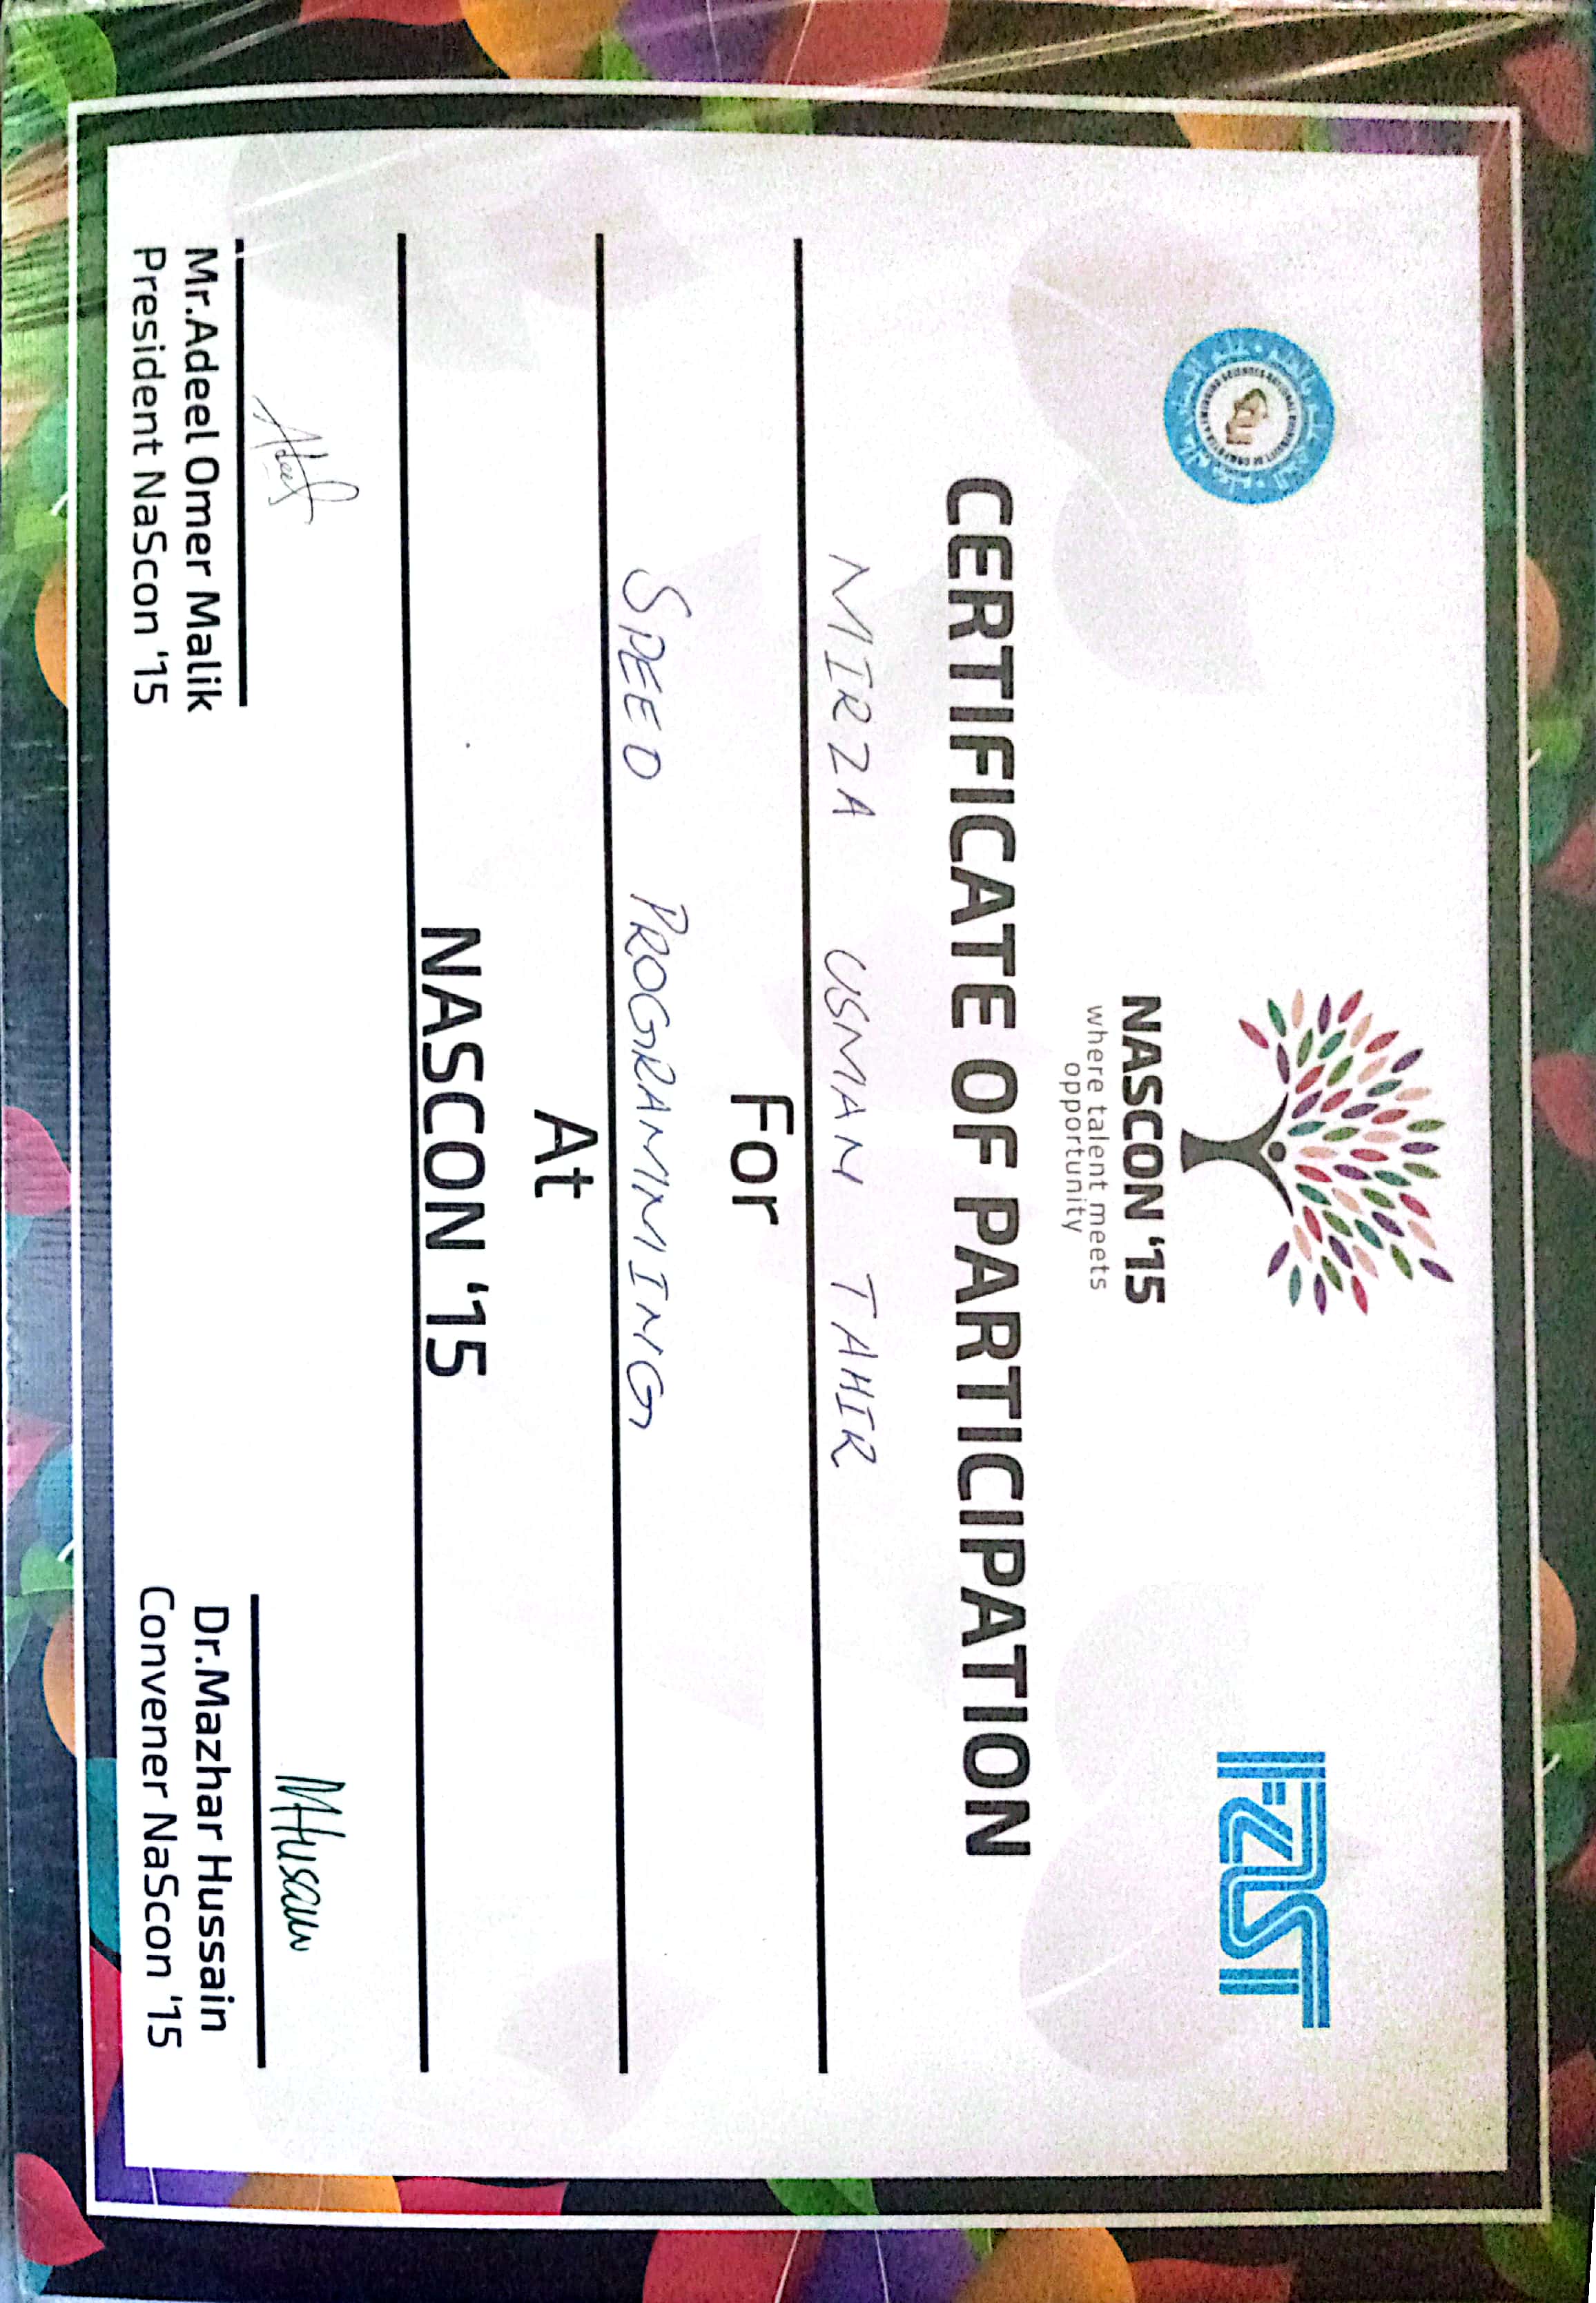 NASCON '15
where talent meets
opportunity
FAST
CERTIFICATE OF PARTICIPATION
MIRZA USMAN TAHIR
For
SPEED PROGRAMMING
At
NASCON '15
Mr.Adeel Omer Malik
President NaScon '15
MHusain
Dr.Mazhar Hussain
Convener NaScon '15